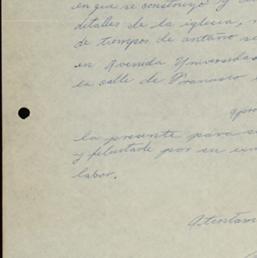 en que se construyó y
detalles de la iglesia,
de tiempos de antaño se
en Avenida Universidad
la calle de
la presente para
y felicitarle por su
labor.
Atentam